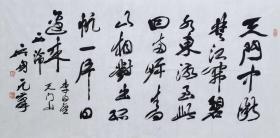 天門中断
楚江開碧
水東流至此
回兩岸青
山相對出孤
帆一片日
邊来
李白望
天门山